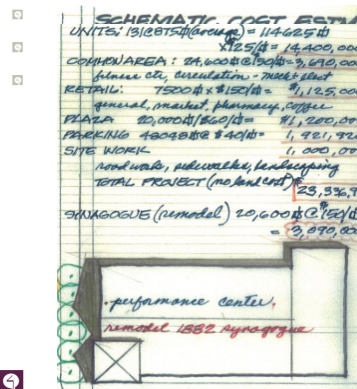 SCHEMATIC COST ESTIM
UNITS: 131@875⌀(average) = 114625⌀
x125/⌀ = 14,400,00
COMMON AREA: 24,600@150/⌀=3,690,000
fitness ctr, circulation - mech+elect
RETAIL: 7500⌀ x $150/⌀= $1,125,00
general, market, pharmacy, coffee
PLAZA 20,000⌀/$60/⌀= $1,200,00
PARKING 48048⌀@ $40/⌀= 1,921,92
SITE WORK 1,000,00
roadwork, sidewalks, landscaping
TOTAL PROJECT (no land cost) $
23,336,9
SYNAGOGUE (remodel) 20,600⌀@$150/⌀
= 3,090,000
performance center,
remodel 1882 synagogue